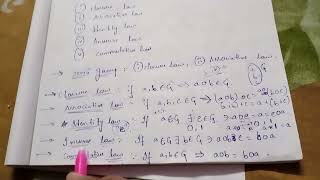 ① Closure law
② Associative law
③ Identity law
④ Inverse law
⑤ Commutative law
→ Semi group : ① Closure law, ② Associative law.
→ Closure law : If a, b ∈ G ⇒ aob ∈ G
→ Associative law : If a, b, c ∈ G ⇒
→ Identity law : If a ∈ G ∃ e ∈ G ∋ aoe = eoa = a
→ Inverse law : If a ∈ G ∃ b ∈ G ∋ aob = boa = e
→ Commutative law : If a, b ∈ G ⇒ aob = boa.